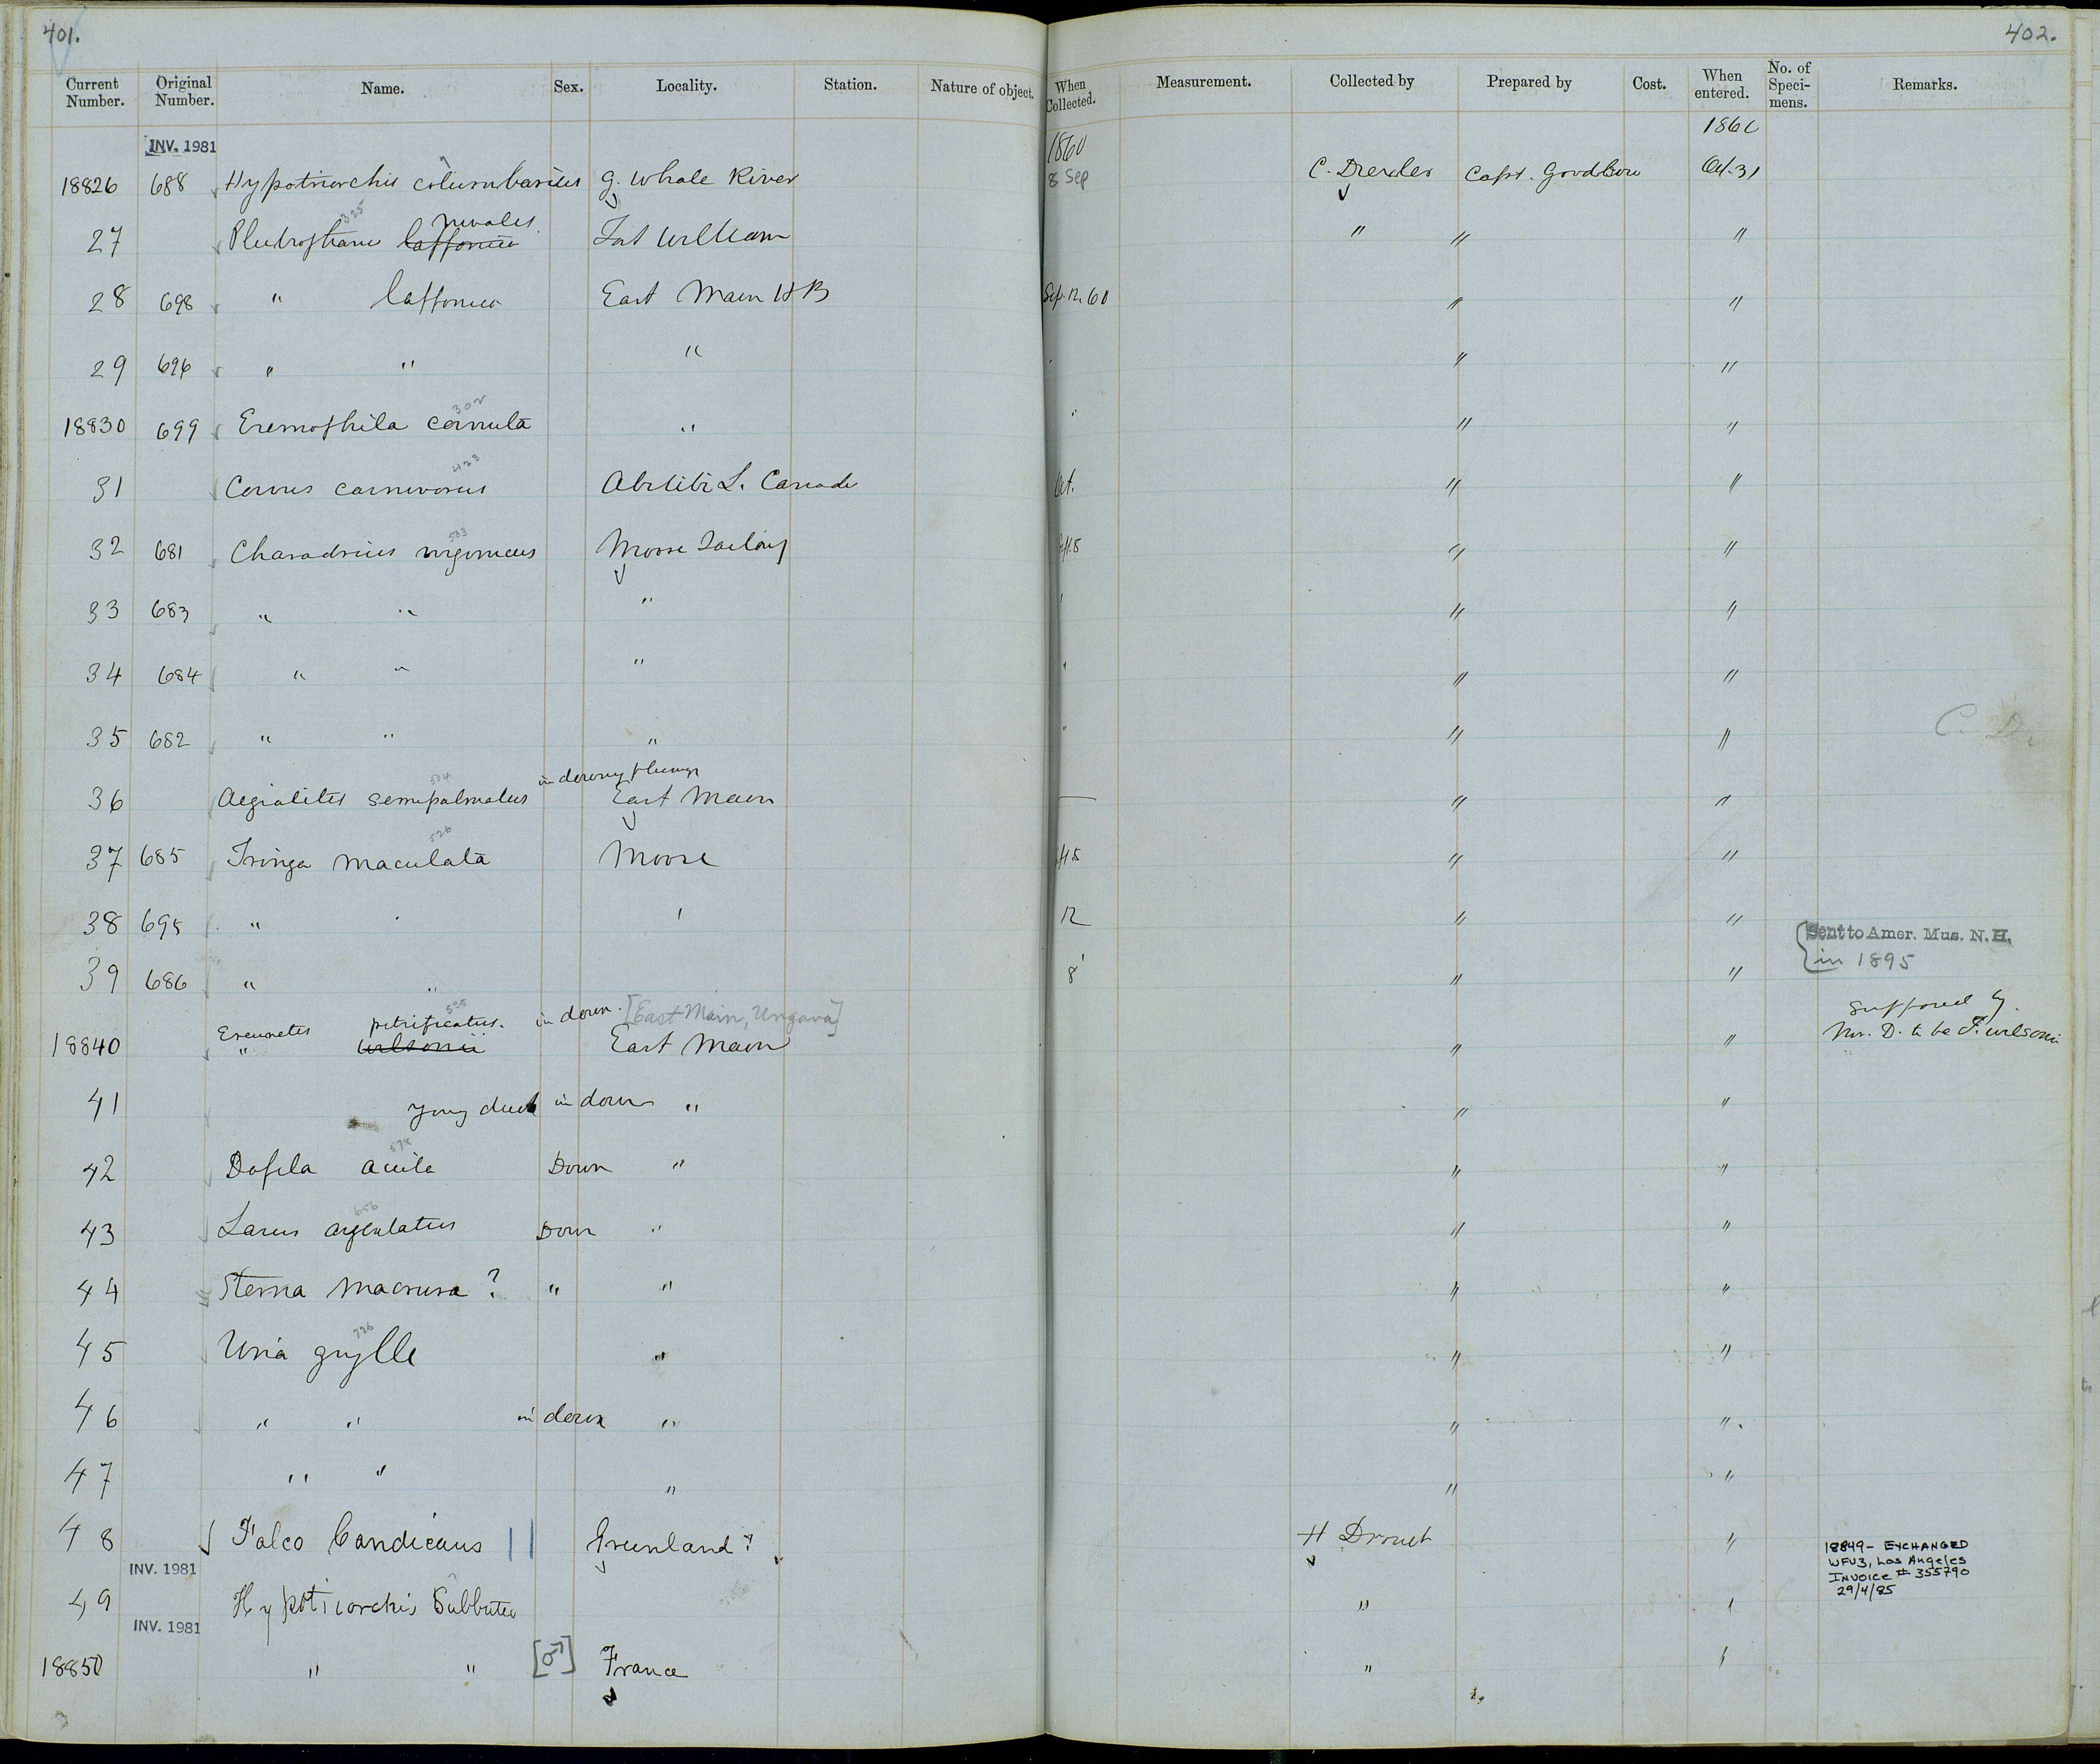 401.
402.
Current Number. Original Number. Name. Sex. Locality. Station. Nature of object. When Collected. Measurement. Collected by Prepared by Cost. When entered. No. of Speci-mens. Remarks.
INV. 1981 1860 186
18826 688 Hypotriorchis columbarius G. Whale River 8 Sep C. Drexler Capt. Oct. 31
325 nivalis.
27 Plectrophanes lapponicus Fort William " " "
28 698 " lapponicus East Main H B Sep. 12. 60 " "
29 696 " " " " "
302
18830 699 Eremophila cornuta " " " "
423
31 Corvus carnivorus Abitibi L. Canada Oct. " "
503
32 681 Charadrius virginicus Moose Factory Sept. 8 " "
33 683 " " " " " "
34 684 " " " " " "
35 682 " " " " " " C. D.
504 in downy plumage
36 Aegialitis semipalmatus East Main — " "
526
37 685 Tringa maculata Moose " "
38 695 " " " 12 " "
Sent to Amer. Mus. N. H.
in 1895
39 686 " " 8 " "
Ereunetes petrificatus. in down. [East Main, Ungava] Supposed by
18840 " wilsonii East Main " " Mr. D. to be T. wilsonii
41 Young duck in down " " "
42 Dafila acuta Down " " "
656
43 Larus argentatus Down " " "
44 Sterna macrura ? " " " "
726
45 Uria grylle " " "
46 " " in down " " "
47 " " " " "
48 Falco Candicans Greenland ? H Drouet "
INV. 1981
18849 - EXCHANGED
WFVZ, Los Angeles
INVOICE # 355790
29/4/85
49 Hypotriorchis Subbuteo " "
INV. 1981
18850 " " [♂] France " "